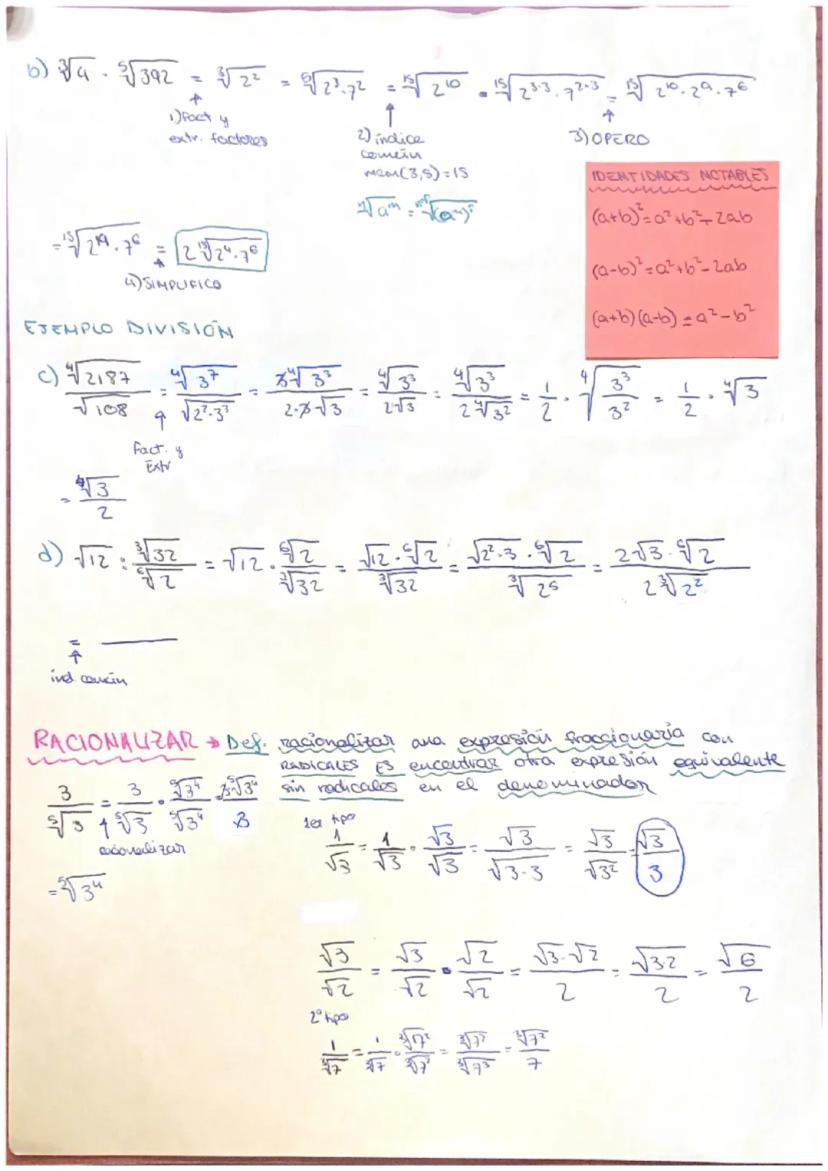 b) ∛4 · ⁵√392 = ∛2² = ⁵√2³·7² = ¹⁵√2¹⁰ · ¹⁵√2³·³·7²·³ = ¹⁵√2¹⁰·2⁹·7⁶
1) Fact y
extr. factores
2) índice
común
mcm(3,5)=15
3) OPERO
ⁿ√aᵐ =
IDENTIDADES NOTABLES
(a+b)²=a²+b²+2ab
(a-b)²=a²+b²-2ab
(a+b)(a-b)=a²-b²
= ¹⁵√2¹⁹·7⁶ = 2 ¹⁵√2⁴·7⁶
4) SIMPLIFICO
EJEMPLO DIVISIÓN
c) ⁴√2187/√108 = ⁴√3⁷/√2²·3³ = 3⁴√3³/2·3·√3 = ⁴√3³/2√3 = ⁴√3³/2⁴√3² = 1/2 · ⁴√3³/3² = 1/2 · ⁴√3
Fact. y
Extr
= ⁴√3/2
d) √12 : ∛32/⁶√2 = √12 · ⁶√2/∛32 = √12·⁶√2/∛32 = √2²·3·⁶√2/∛2⁵ = 2√3·⁶√2/2∛2²
= ———
ind. común
RACIONALIZAR → Def. racionalizar una expresión fraccionaria con
RADICALES ES encontrar otra expresión equivalente
sin radicales en el denominador
3/⁵√3 = 3/⁵√3 · ⁵√3⁴/⁵√3⁴ = 3⁵√3⁴/3
racionalizar
= ⁵√3⁴
1er tipo
1/√3 = 1/√3 · √3/√3 = √3/√3·3 = √3/√3² = √3/3
√3/√2 = √3/√2 · √2/√2 = √3·√2/2 = √3·2/2 = √6/2
2º tipo
1/∛7 = 1/∛7 · ∛7²/∛7² = ∛7²/∛7³ = ∛7²/7